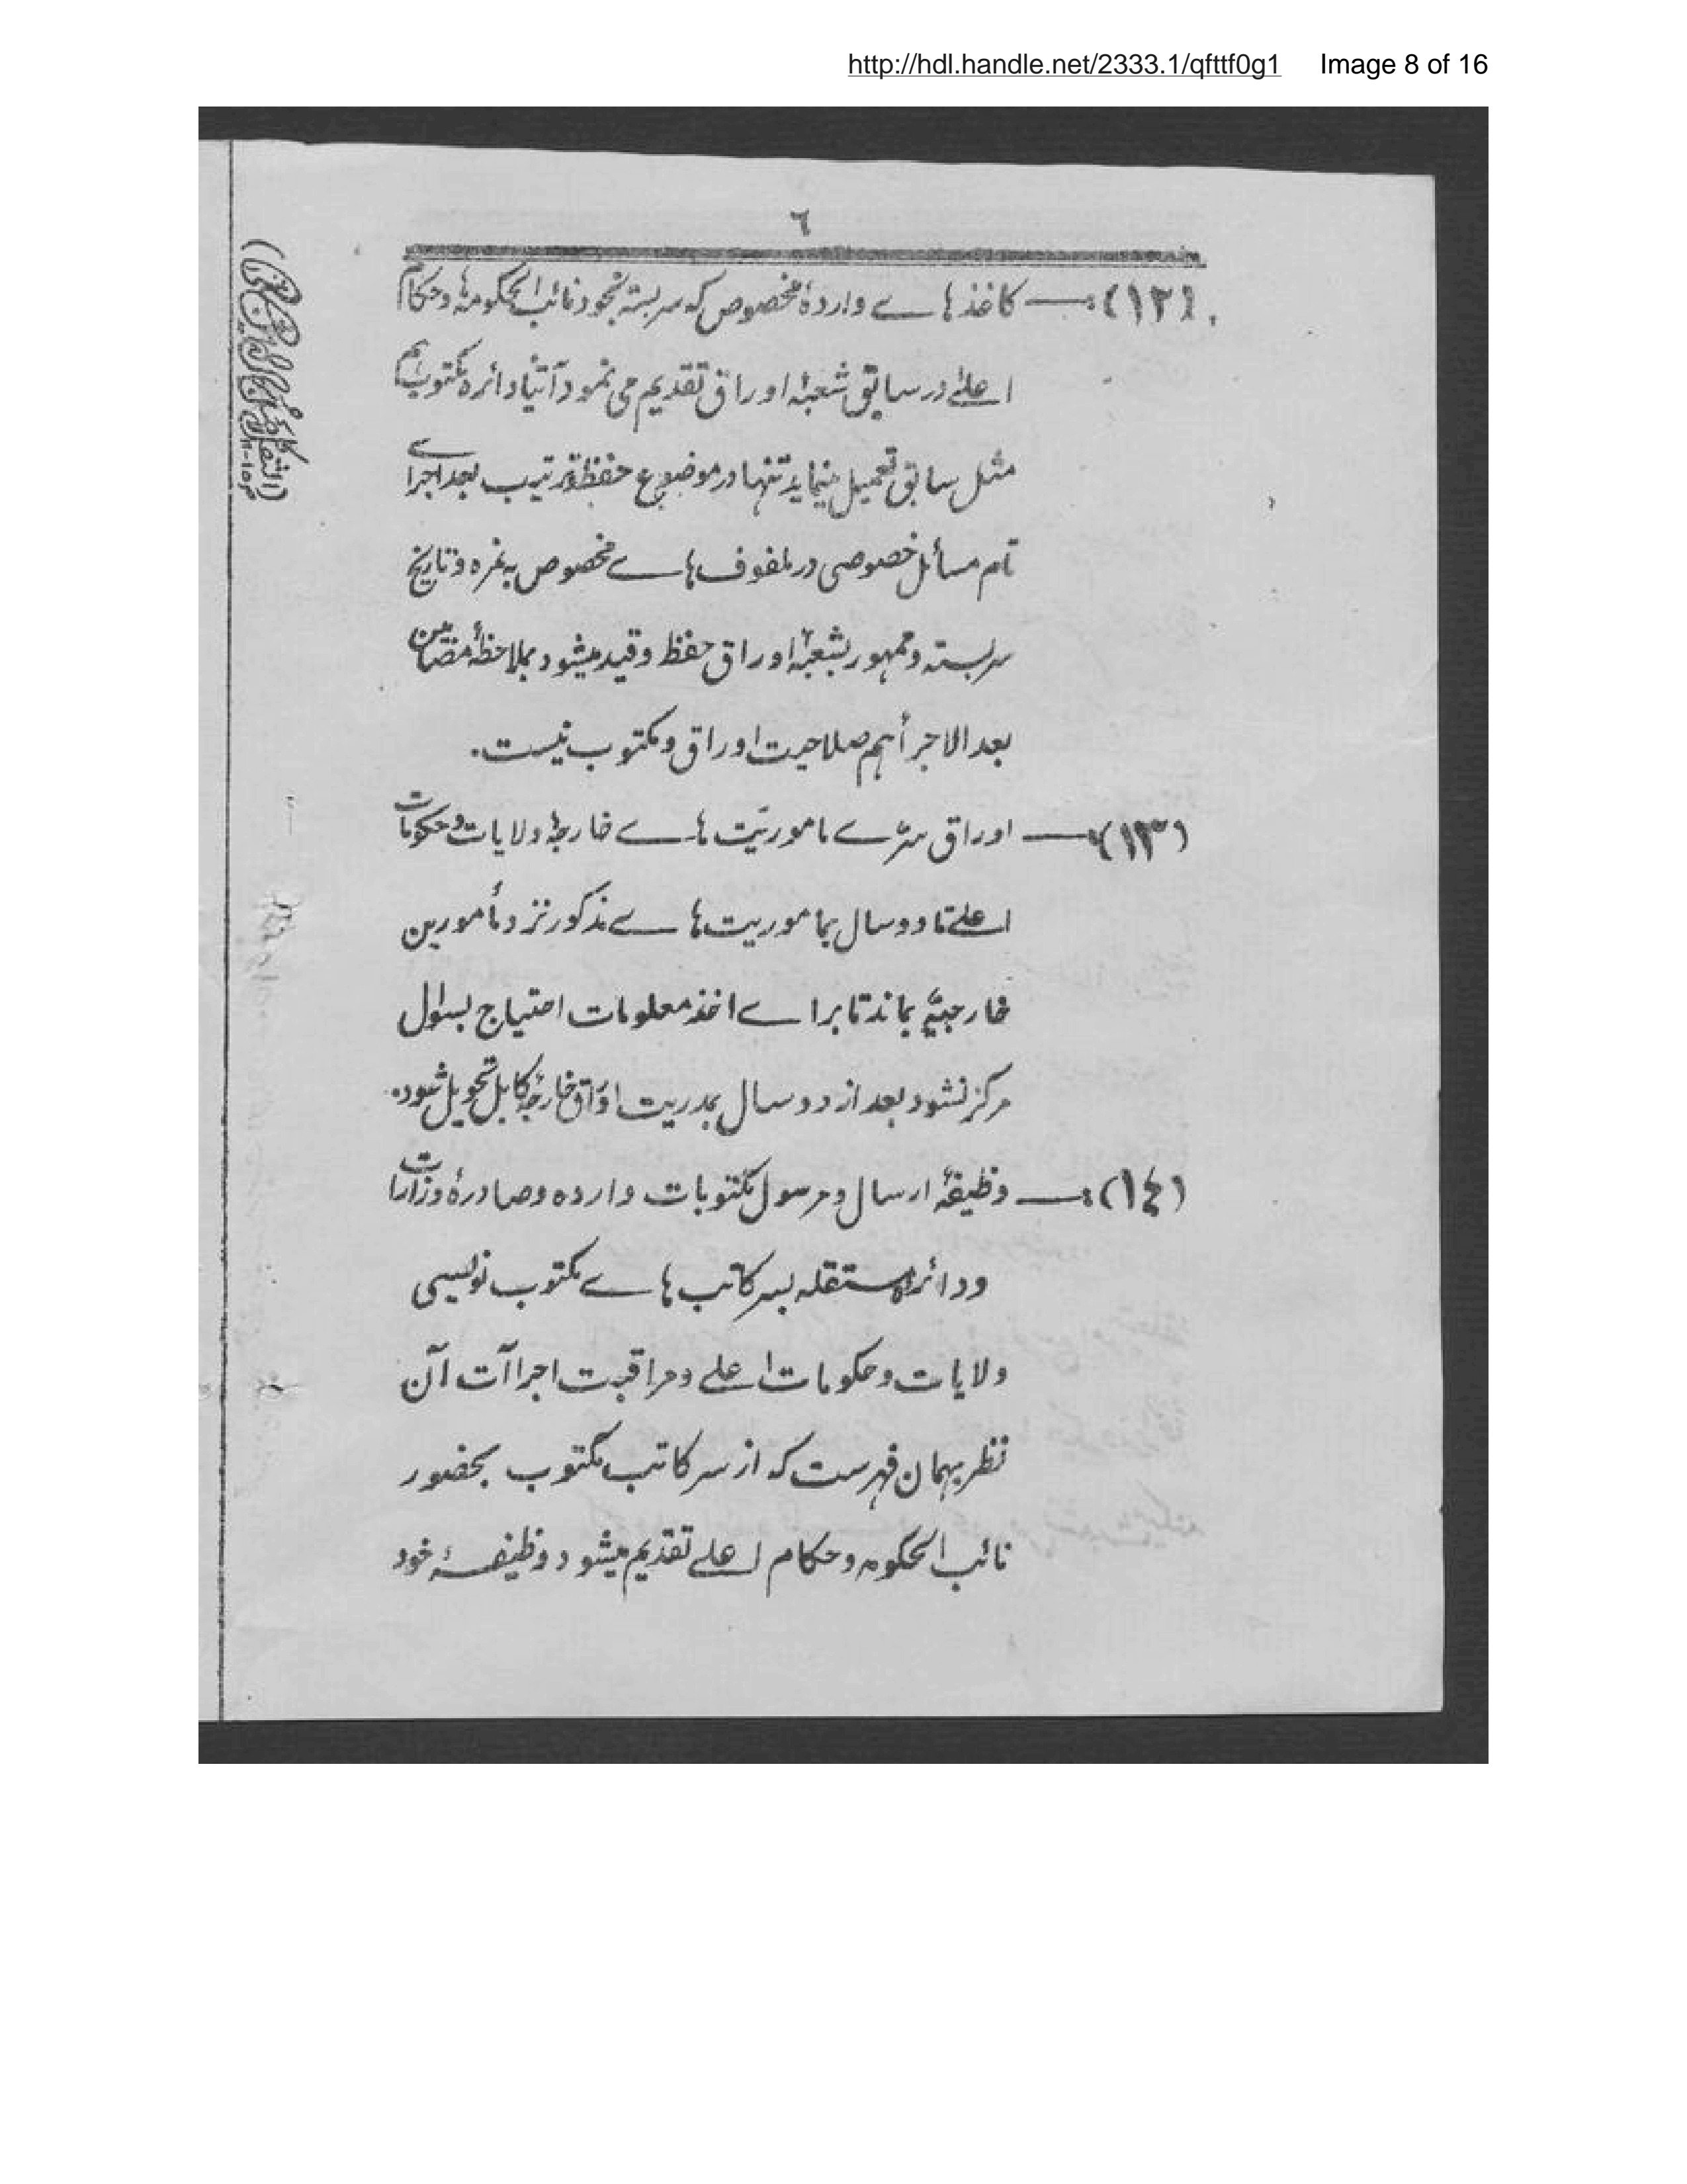 http://hdl.handle.net/2333.1/qfttf0g1 Image 8 of 16
٦
(١٢):— کاغذ هاے واردهٔ مخصوص که سر بسته بخود نائب الحکومه ها و حکام
اعلےٰ در سابق شعبهٔ اوراق تقدیم می نمود آتیاً دائره مکتوب هم
مثل سابق تعمیل مینماید تنها در موضوع حفظ و ترتیب بعد اجراے
تام مسائل خصوصی در ملفوف هاے مخصوص به نمره و تاریخ
سربسته و ممهور بشعبهٔ اوراق حفظ و قید میشود بملاحظهٔ مضامین
بعد الاجرأ هم صلاحیت اوراق و مکتوب نیست.
(١٣):— اوراق سرّے ماموریّت هاے خارجهٔ ولایات و حکومات
اعلے تا دو سال بماموریت هاے مذکور نزد مأمورین
خارجیّه بماند تا براے اخذ معلومات احتیاج بسوال
مرکز نشود بعد از دو سال بمدریت اوراق خارجهٔ کابل تحویل شود.
(١٤):— وظیفهٔ ارسال و مرسول مکتوبات وارده و صادرهٔ وزارات
و دائرهٔ مستقله بسر کاتب هاے مکتوب نویسی
ولایات و حکومات اعلے و مراقبت اجراآت آن
نظر بهمان فهرست که از سر کاتب مکتوب بحضور
نائب الحکومه و حکام اعلے تقدیم میشود وظیفهٔ خود